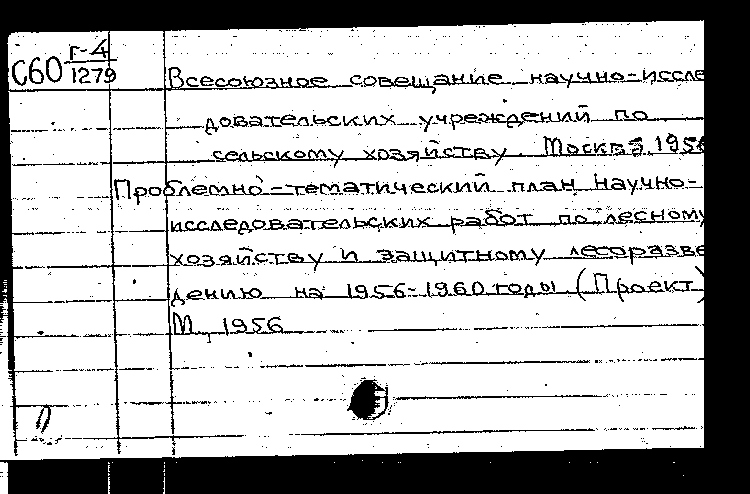 С60 г-4
1279
Всесоюзное совещание научно-иссле
довательских учреждений по
сельскому хозяйству. Москва. 195
Проблемно-тематический план научно-
исследовательских работ по лесному
хозяйству и защитному лесоразве
дению на 1956-1960 годы. (Проект)
М., 1956